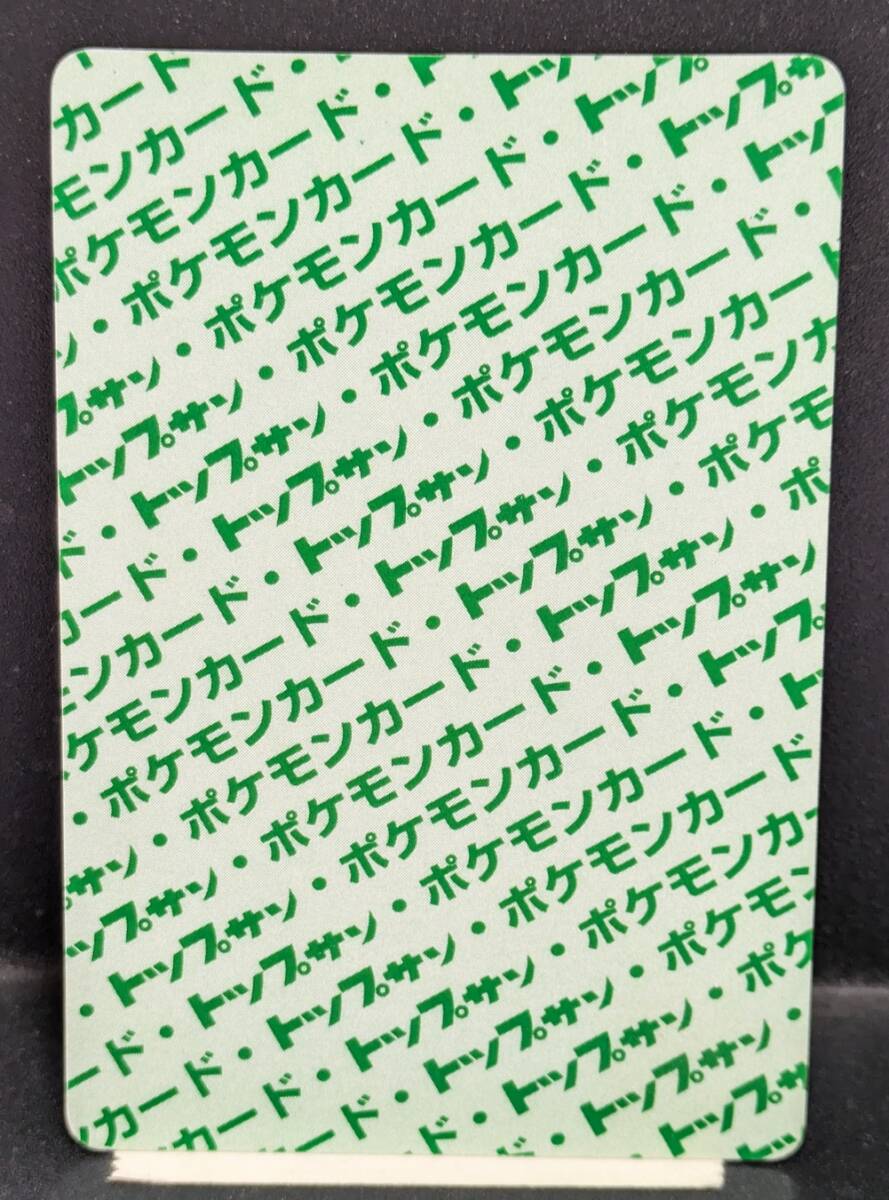 カード
モンカード・
ポケモンカード・ト
ン・ポケモンカード・トッ
プサン・ポケモンカード・トップ
トップサン・ポケモンカード・トップサ
ド・トップサン・ポケモンカード・トップ
ード・トップサン・ポケモンカード・ト
ンカード・トップサン・ポケモンカード
ケモンカード・トップサン・ポケモンカ
・ポケモンカード・トップサン・ポケモ
サン・ポケモンカード・トップサン・ポ
ップサン・ポケモンカード・トップサン
・トップサン・ポケモンカード・トップ
ード・トップサン・ポケモンカード・ト
カード・トップサン・ポケモンカード
カード・トップサン・ポケモンカー
ド・トップサン・ポケモン
ド・トップサン・ポケ
・トップサン・
トップサ